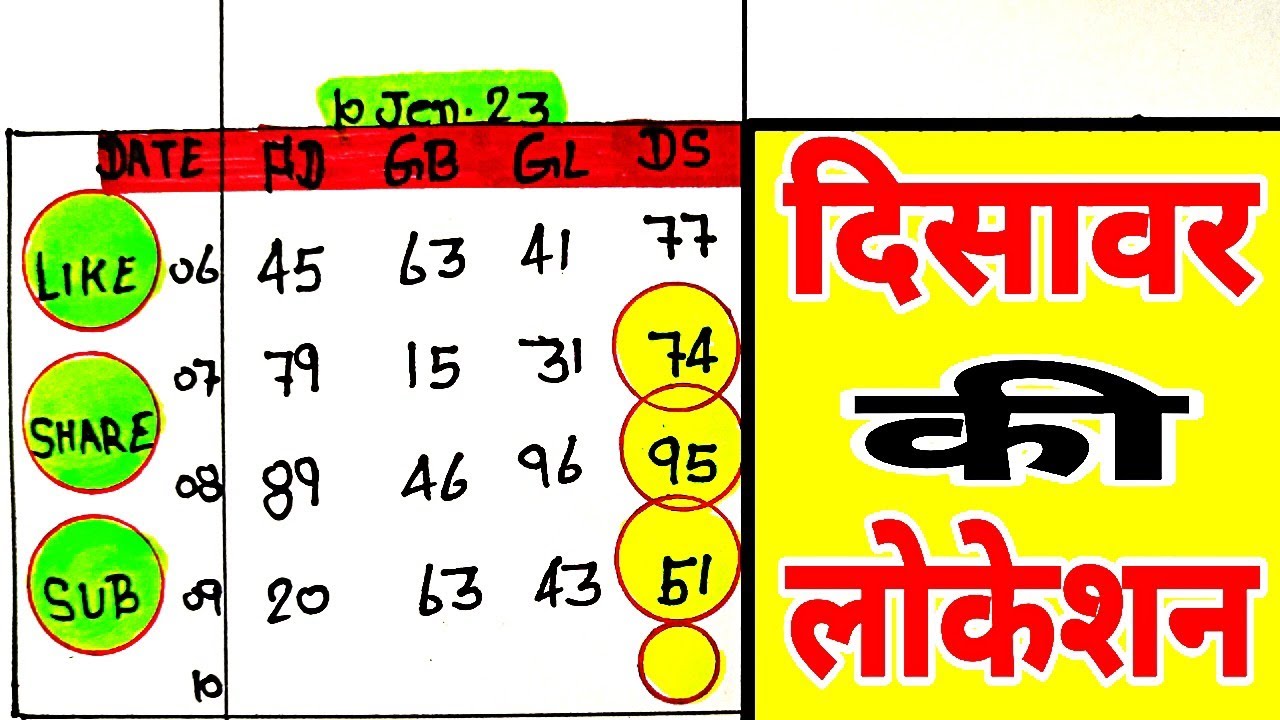 10 Jen. 23
DATE FD GB GL DS
LIKE 06 45 63 41 77
07 79 15 31 74
SHARE 08 89 46 96 95
SUB 09 20 63 43 51
10
दिसावर
की
लोकेशन